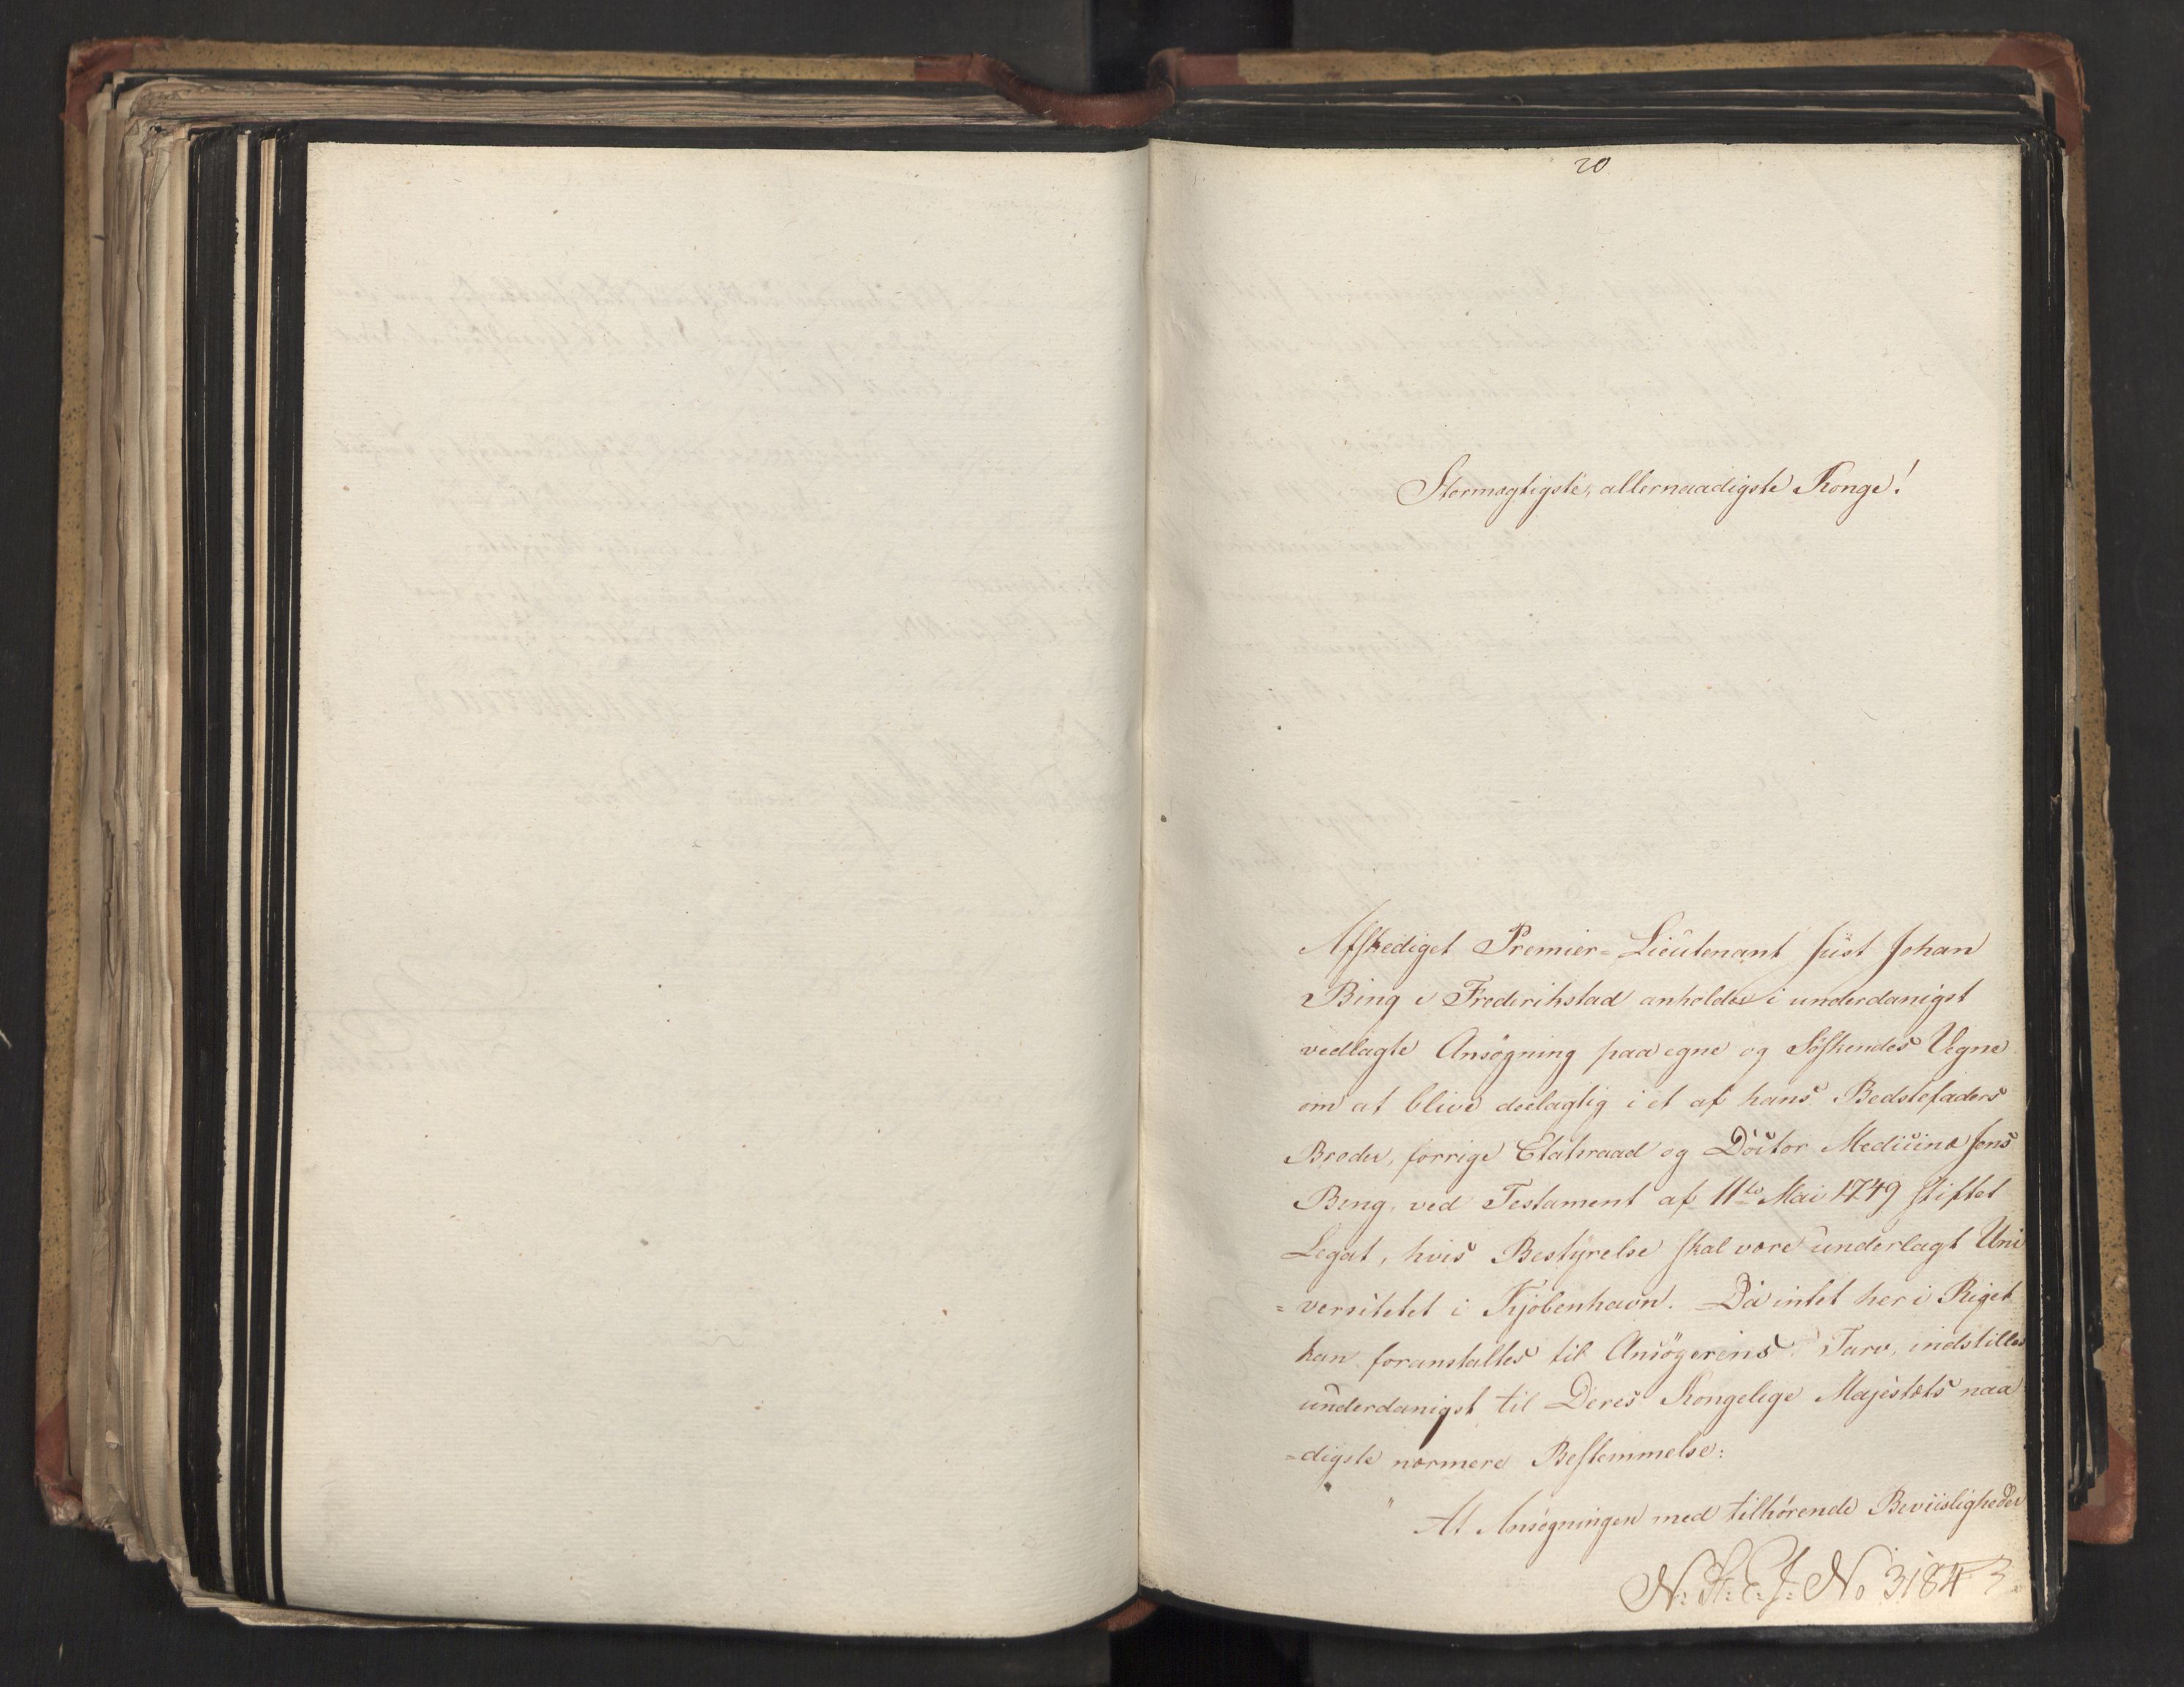 20
Stormægtigste, allernaadigste Konge!
Afskediget Premier-Lieutenant Just Johan
Bing i Frederikstad anholder i underdanigst
vedlagte Ansøgning paa egne og Søskendes Vegne
om at blive deelagtig i et af hans Bedstefaders
Broder, forrige Etatsraad og Doctor Medicinæ Jens
Bing, ved Testament af 11te Mai 1749 stiftet
Legat, hvis Bestyrelse skal være underlagt Uni
= versitetet i Kjøbenhavn. Da intet her i Riget
kan foranstaltes til Ansøgerens Tarv, indstilles
underdanigst til Deres Kongelige Majestæts naa
=digste nærmere Bestemmelse:
" At Ansøgningen med tilhørende Beviisligheder
N: St: E: J: No 3184